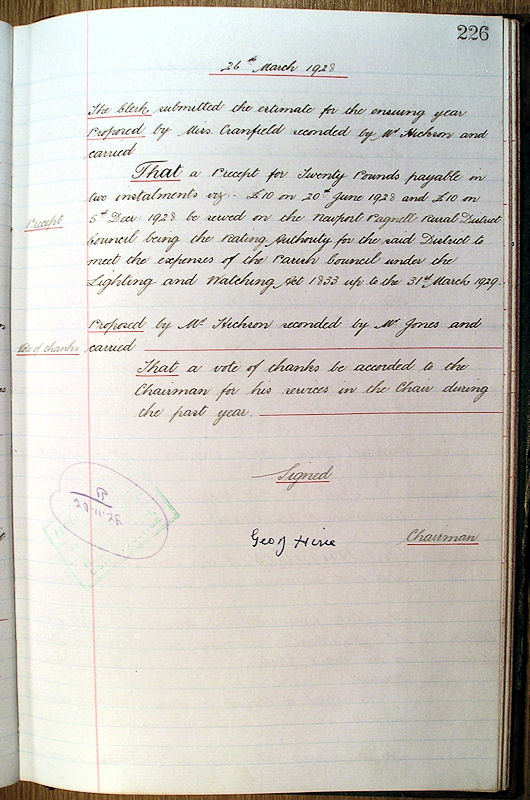 226
26th March 1928
The Clerk submitted the estimate for the ensuing year
Proposed by Mrs. Cranfield seconded by Mr Hickson and
carried
That a Precept for Twenty Pounds payable in
two instalments viz:- £10 on 20th June 1928 and £10 on
Precept
5th Decr 1928 be served on the Newport Pagnell Rural District
Council being the Rating Authority for the said District to
meet the expenses of the Parish Council under the
Lighting and Watching Act 1833 up to the 31st March 1929.
Proposed by Mr Hickson seconded by Mr Jones and
Vote of thanks
carried
That a vote of thanks be accorded to the
Chairman for his services in the Chair during
the past year.
Signed
Geo J
Chairman